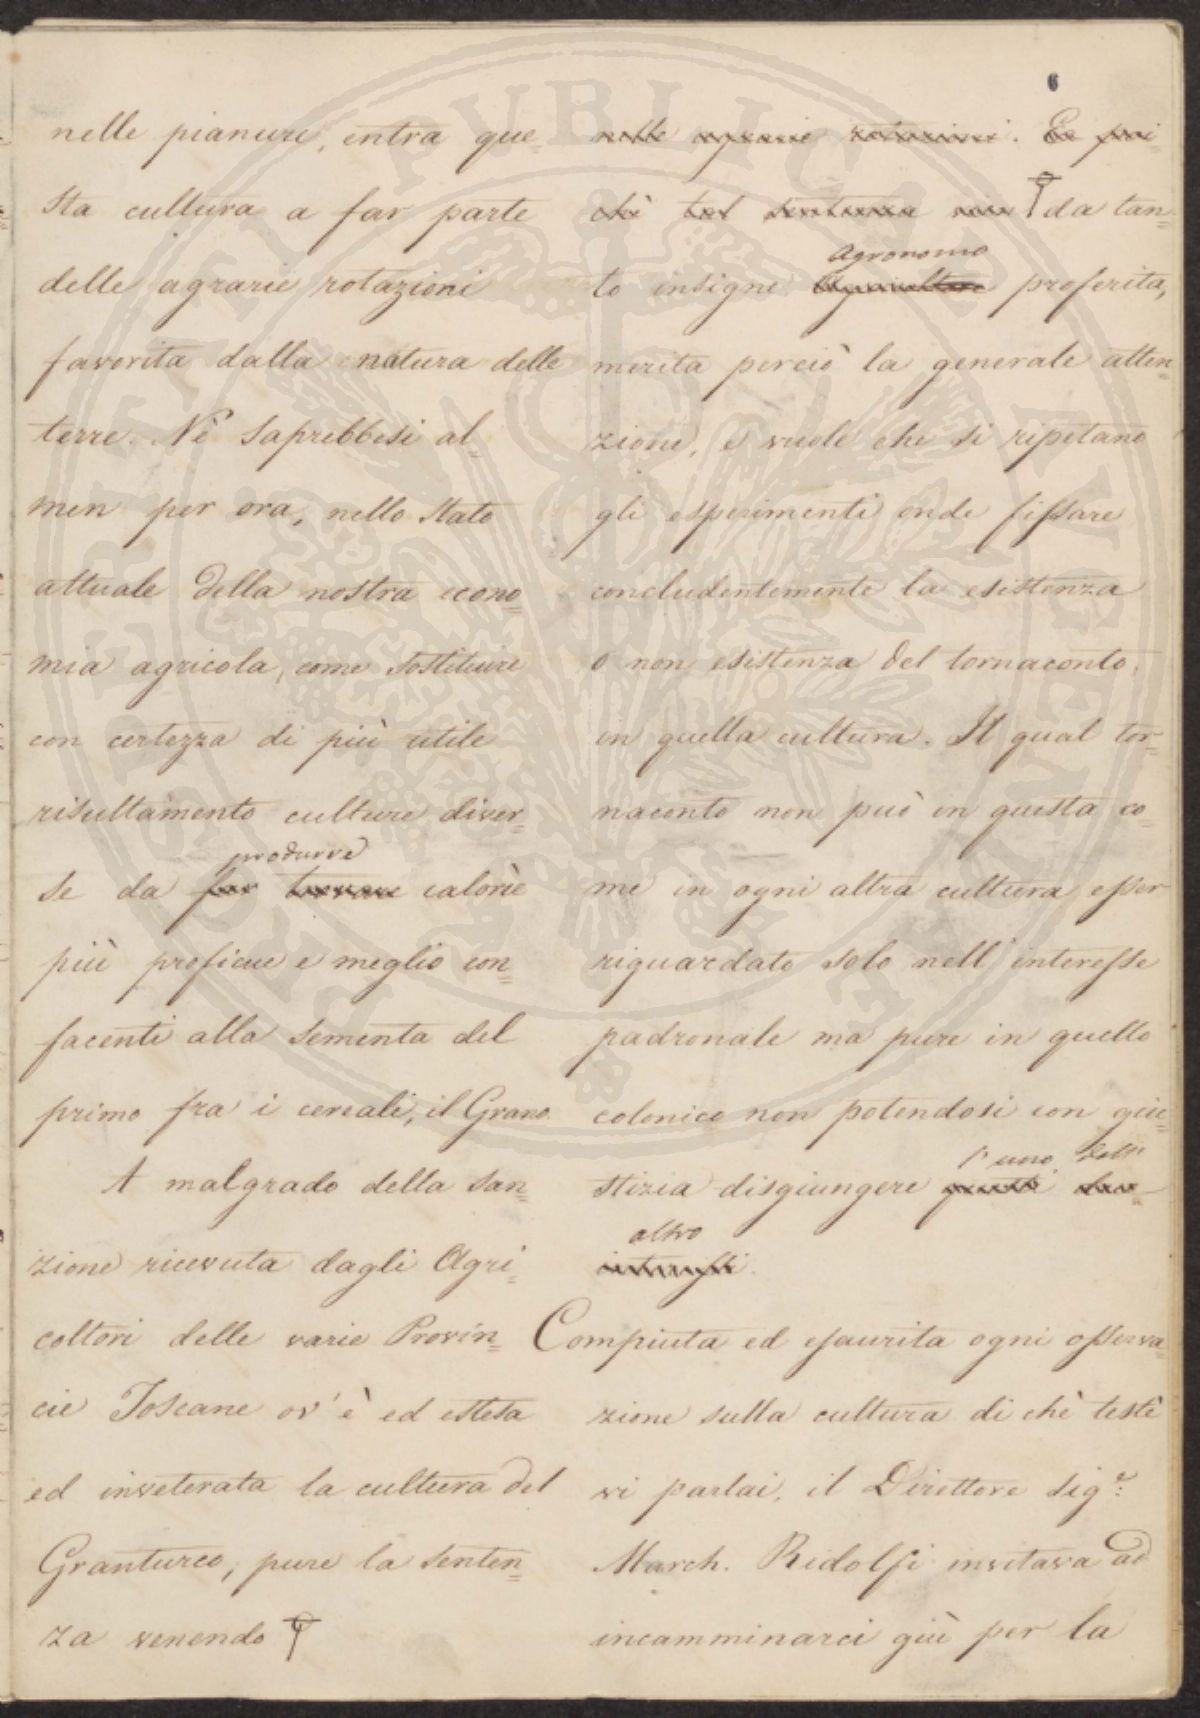 6
nelle pianure, entra que=
sta cultura a far parte
delle agrarie rotazioni
favorita dalla natura delle
terre. Nè saprebbesi al=
men per ora, nello stato
attuale della nostra econo=
mia agricola, come sostituire
con certezza di più utile
risultamento culture diver=
produrre
se da far trovare calorie
più proficue e meglio con=
facenti alla sementa del
primo fra i cereali, il Grano.
A malgrado della san=
zione ricevuta dagli Agri=
coltori delle varie Provin=
cie Toscane ov'è ed estesa
ed inveterata la cultura del
Granturco, pure la senten=
za venendo
nelle agrarie rotazioni. E poi
chè tal sentenza da tan=
Agronomo
to insigne Agricoltore proferita,
merita perciò la generale atten=
zione, e vuole che si ripetano
gli esperimenti onde fissare
concludentemente la esistenza
o non esistenza del tornaconto,
in quella cultura. Il qual tor=
naconto non può in questa co=
me in ogni altra cultura esser
riguardato solo nell'interesse
padronale ma pure in quello
colonico non potendosi con giu=
l'uno dall'
stizia disgiungere questi due
altro
interessi.
Compiuta ed esaurita ogni osserva=
zione sulla cultura di chè testè
vi parlai, il Direttore Sig.r
March. Ridolfi invitava ad
incamminarci giù per la